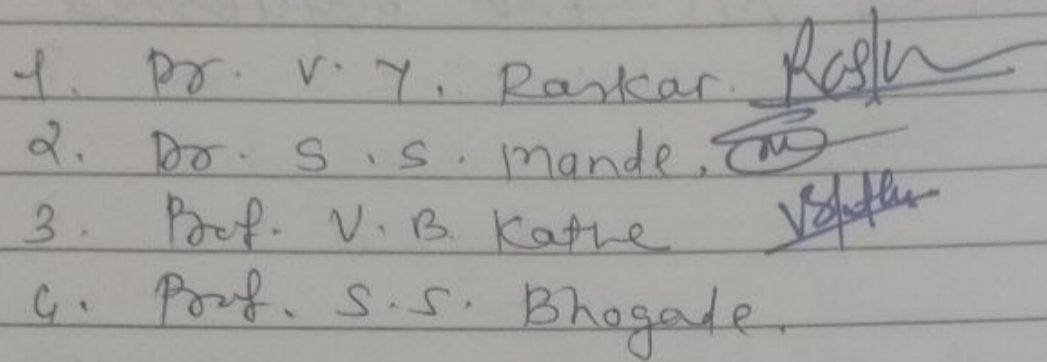 1. Dr. V. Y. Raskar.
2. Dr. S. S. Mande.
3. Prof. V. B. Kathe
4. Prof. S. S. Bhogade.